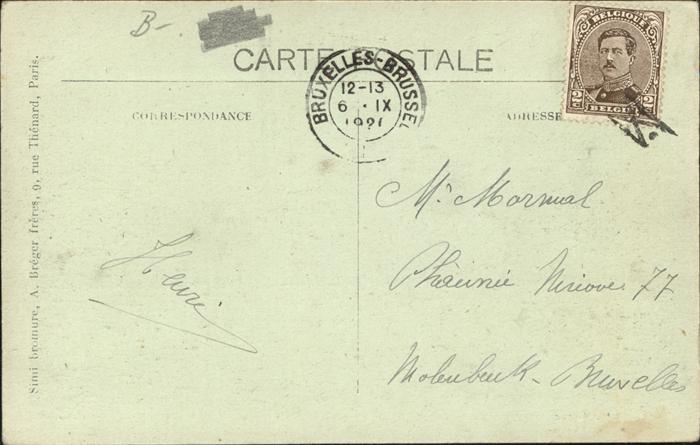 B-
CARTE POSTALE
BELGIQUE
2 C 2 C
BELGIE
BRUXELLES-BRUSSEL
12-13
6 . IX
1921
CORRESPONDANCE
ADRESSE
Mr Mormal
77
Molenbeek-Bruxelles
Henri
Simi bromure, A. Bréger frères, 9, rue Thénard, Paris.